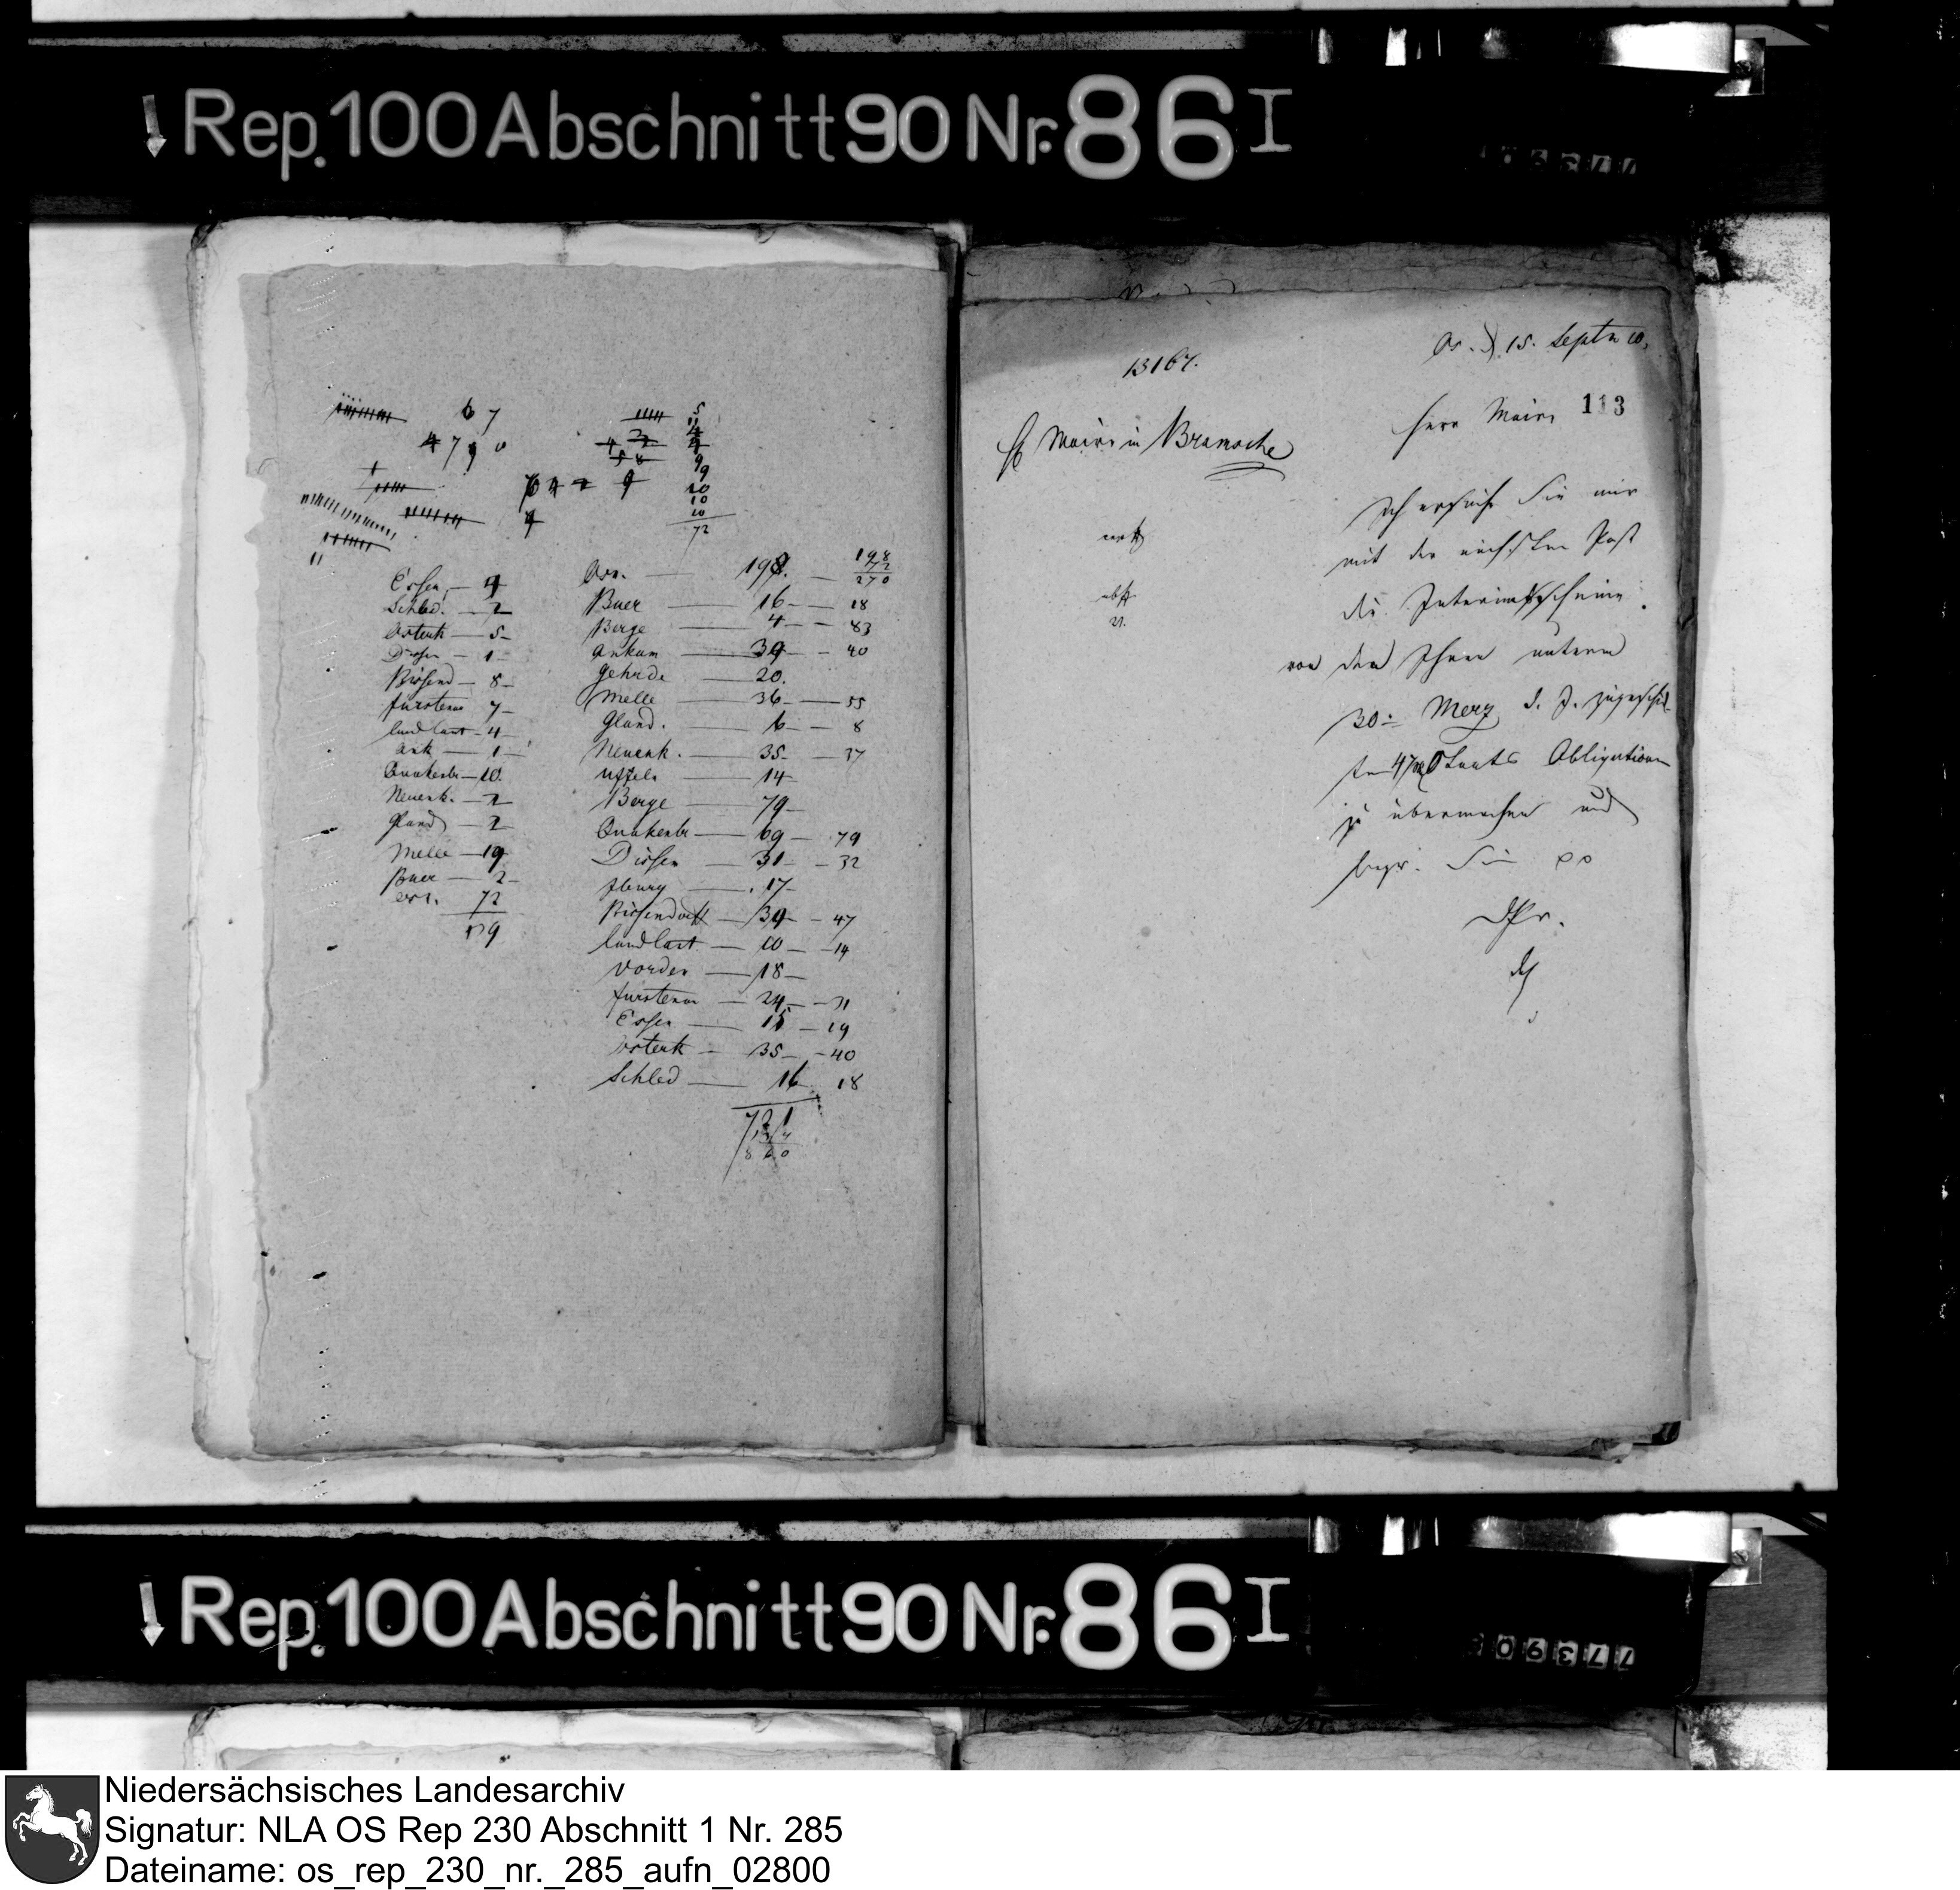 Rep. 100 Abschnitt 90 Nr. 86 I
6 7
4 7 9 0
5
9
9
10
10
10
72
Essen — 4
Schled. — 2
Osterk — 5 —
Dissen — 1
Bissend — 8 —
fürstenau 7 —
landlast — 4 —
ank — 1 —
Quakenbr — 10.
Neuenk. — 2
Gland — 2
Melle — 19
Buer — 2 —
Osn. 72
139
Osn. — 198. — 198
72
270
Buer — 16 — — 18
Berge — 4 — — 83
Ankum — 39 — — 40
Gehrde — 20.
Melle — 36 — — 55
Gland. — 6 — — 8
Neuenk. — 35 — — 37
Uffeln — 14 —
Berge — 79 —
Quakenbr — 69 — 79
Dissen — 31 — — 32
Iburg — 17 —
Bissendorff — 39 — — 47
landlast — 10 — — 14
Vörden — 18 —
fürstenau — 24 — — 31
Essen — 15 — 19
Osterk — 35 — — 40
Schled — 16 18
721
860
13167.
Os. d. 15. Septbr 10.
113
Herr Maire
H Maire in Bramsche
Ich ersuche Sie mir
mit der nächsten Post
die Interimsscheine
von den Ihnen unterm
30. Merz d. J. zugeschick-
ten 47 Staats Obligationen
zu übermachen und
Sie pp
DPr.
Rep. 100 Abschnitt 90 Nr. 86 I
77390
Niedersächsisches Landesarchiv
Signatur: NLA OS Rep 230 Abschnitt 1 Nr. 285
Dateiname: os_rep_230_nr._285_aufn_02800